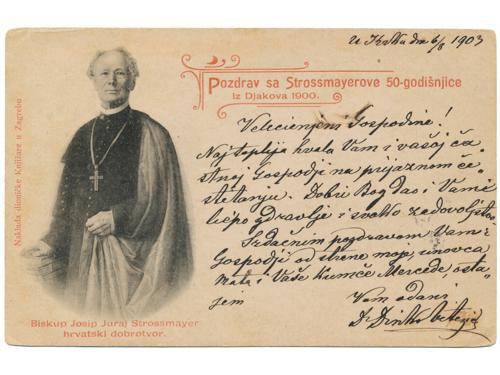 U Krku dne 6/8 1903
Pozdrav sa Strossmayerove 50-godišnjice
iz Djakova 1900.
Velecienjeni Gospodine!
Najtoplija hvala Vam i vašoj ča-
snoj Gospodji na prijaznom če-
stetanju. Dobri Bog dao i Vami
liepo zdravlje i svako zadovoljstvo.
Srdačnim pozdravom Vam i
Gospodji od strane moje, unovca
Mata i Vaše Kumče Mercede, osta-
jem
Vam odani
Dr Dinko
Naklada dioničke Knjižare u Zagrebu
Biskup Josip Juraj Strossmayer
hrvatski dobrotvor.